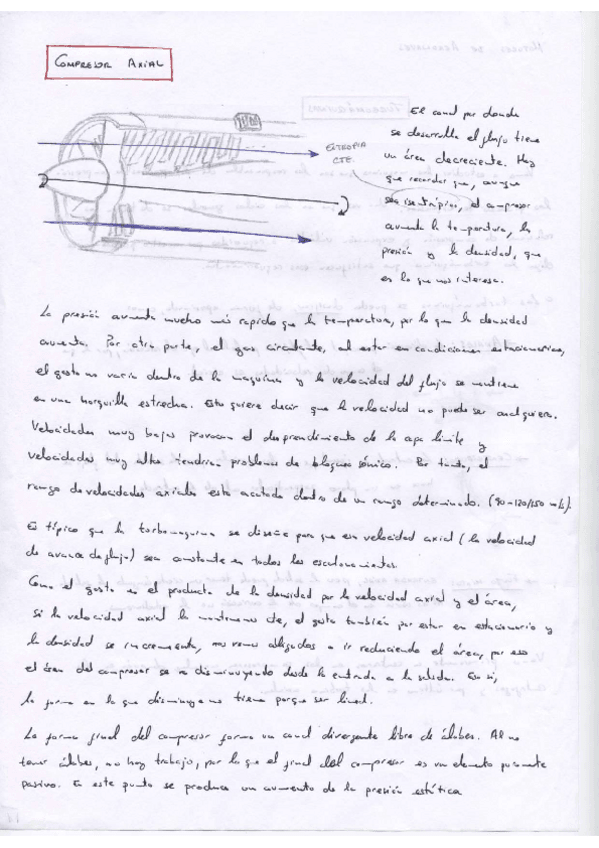 COMPRESOR AXIAL
ENTROPIA
CTE.
El canal por donde
se desarrolla el flujo tiene
un área decreciente. Hay
que recordar que, aunque
sea isentrópico, el compresor
aumenta la temperatura, la
presión y la densidad, que
es lo que nos interesa.
La presión aumenta mucho más rapido que la temperatura, por lo que la densidad
aumenta. Por otra parte, el gas circulante, al estar en condiciones estacionarias,
el gasto no varía dentro de la maquina y la velocidad del flujo se mantiene
en una horquilla estrecha. Esto quiere decir que la velocidad no puede ser cualquiera.
Velocidades muy bajas provocan el desprendimiento de la capa limite y
velocidades muy altas tendrian problemas de bloqueo sónico. Por tanto, el
rango de velocidades axiales esta acotada dentro de un rango determinado. (90-120/150 m/s).
Es típico que la turbomaquina se diseñe para que esa velocidad axial (la velocidad
de avance de flujo) sea constante en todos los escalonamientos.
Como el gasto es el producto de la densidad por la velocidad axial y el área,
si la velocidad axial la mantenemos cte, el gasto también por estar en estacionario y
la densidad se incrementa, nos vemos obligados a ir reduciendo el área, por eso
el área del compresor se va disminuyendo desde la entrada a la salida. En sí,
la forma en la que disminuye no tiene porque ser lineal.
La forma final del compresor forma un canal divergente libre de álabes. Al no
tener álabes, no hay trabajo, por lo que el final del compresor es un elemento puramente
pasivo. En este punto se produce un aumento de la presión estática